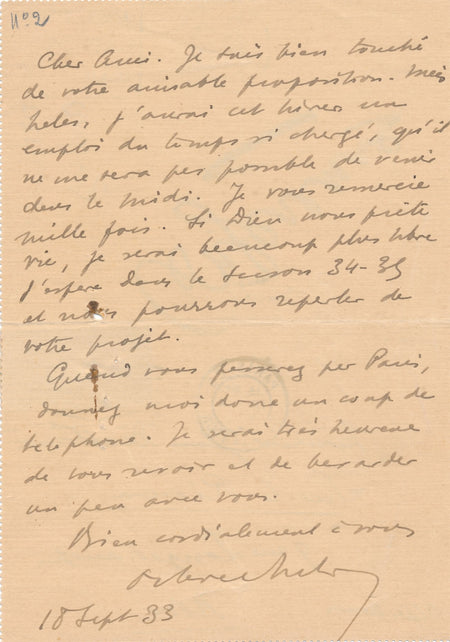 No 2
Cher Ami. Je suis bien touché
de votre aimable proposition. Mais
helas, j'aurai cet hiver un
emploi du temps si chargé, qu'il
ne me sera pas possible de venir
dans le midi. Je vous remercie
mille fois. Si Dieu nous prête
vie, je serai beaucoup plus libre
j'espère dans la saison 34-35
et nous pourrons reparler de
votre projet.
Quand vous passerez par Paris,
donnez moi donc un coup de
telephone. Je serai très heureuse
de vous revoir et de bavarder
un peu avec vous.
Bien cordialement à vous
18 Sept 33